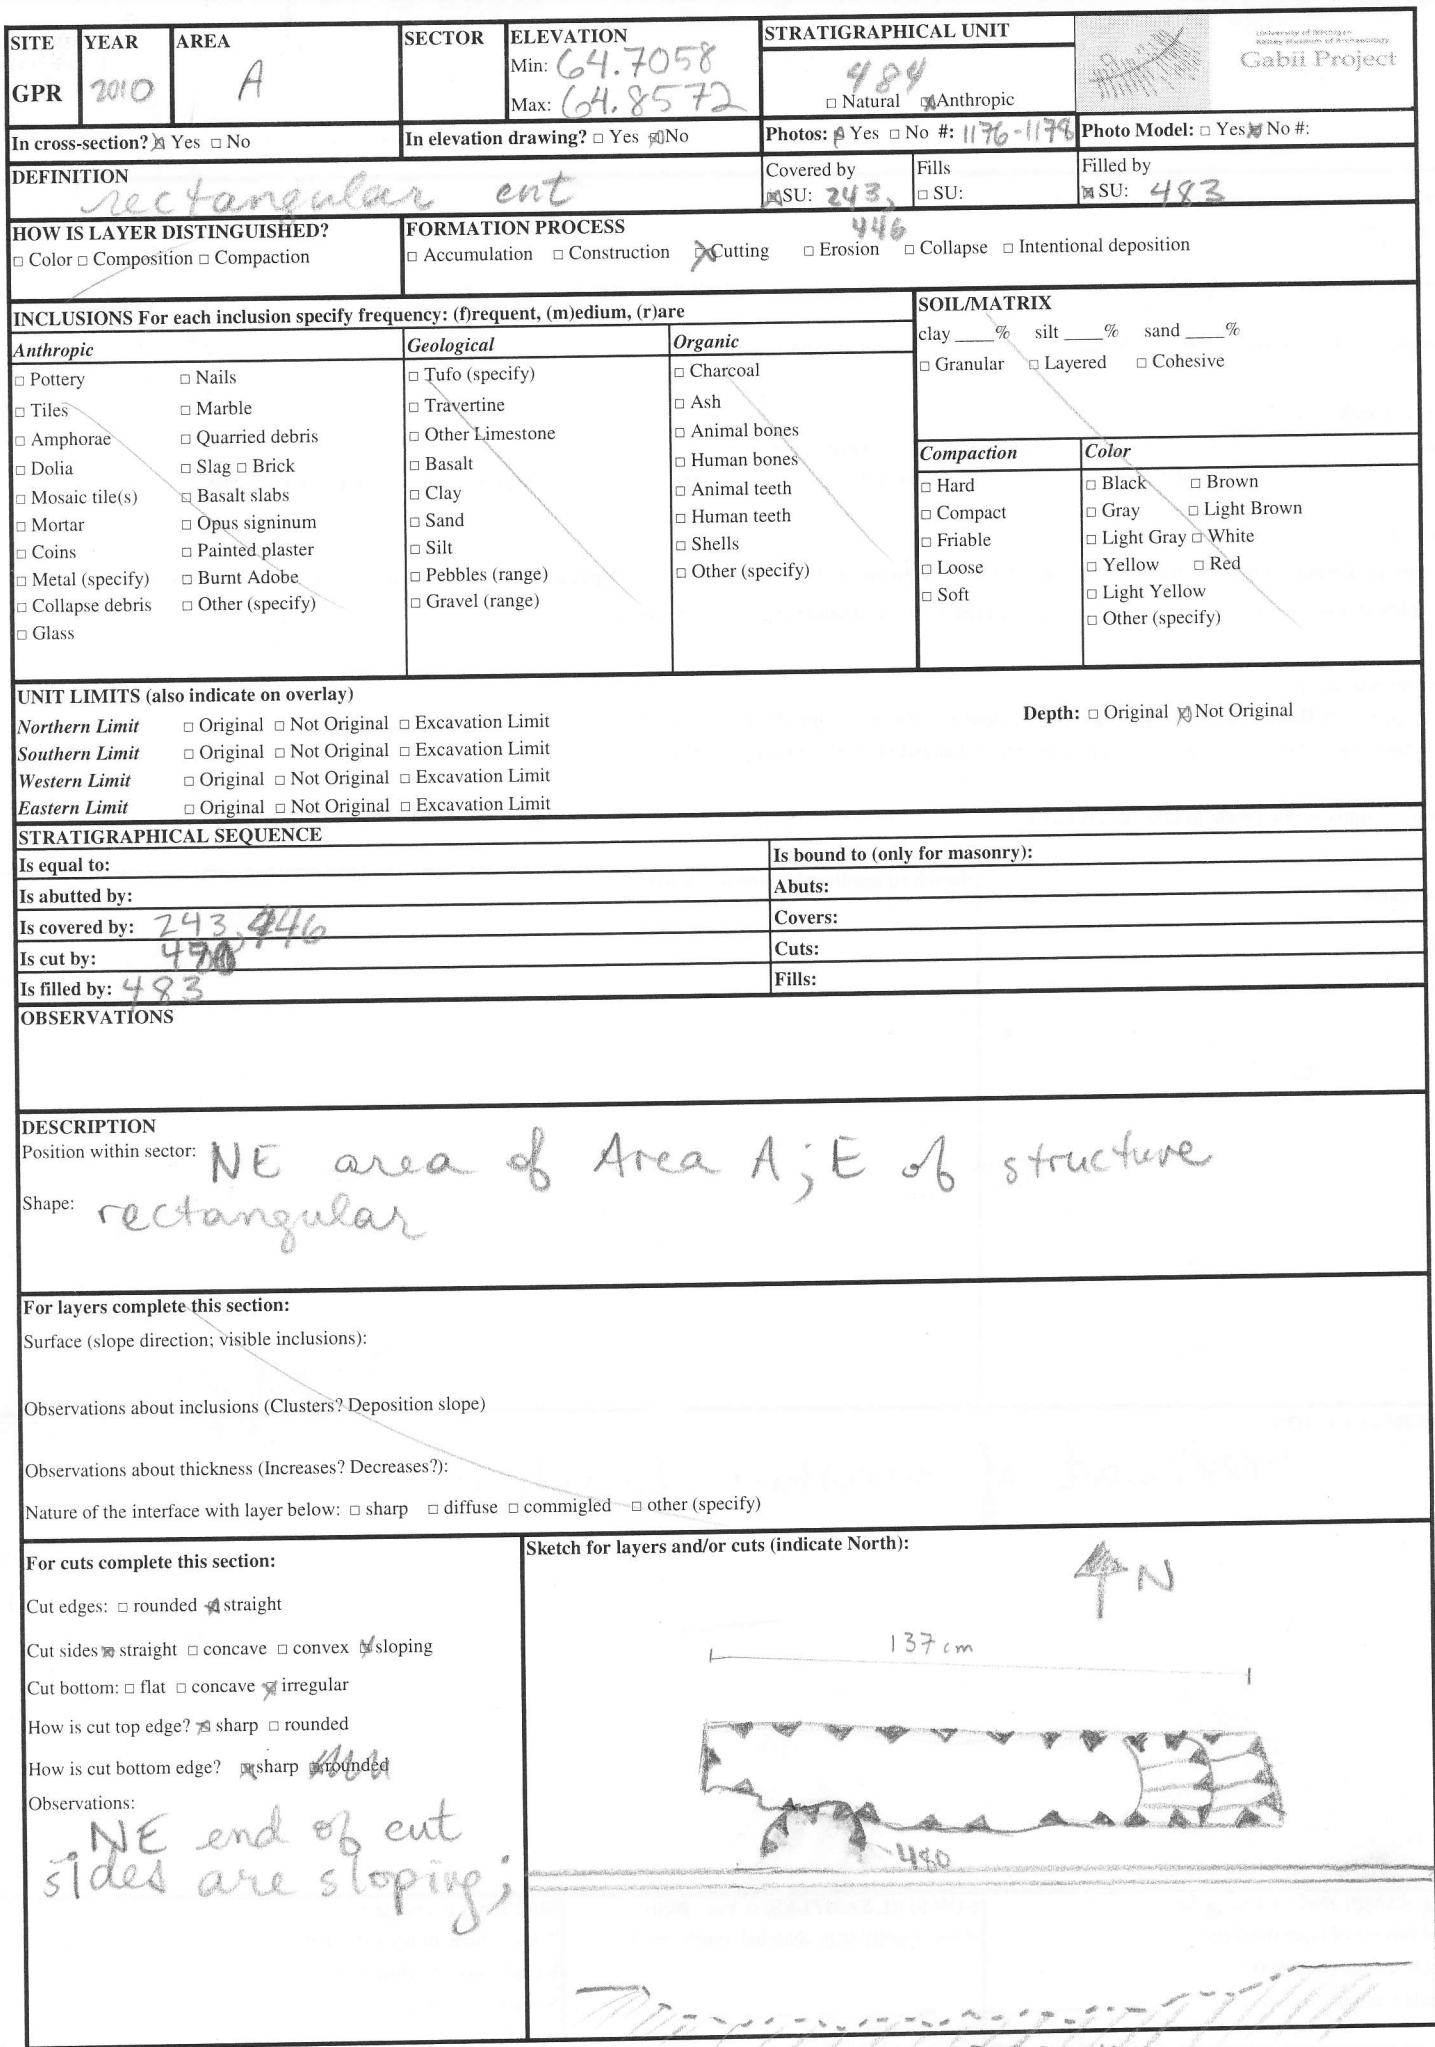 SITE YEAR AREA SECTOR ELEVATION STRATIGRAPHICAL UNIT
University of Michigan
Kelsey Museum of Archaeology
Gabii Project
GPR 2010 A Min: 64.7058 484
Max: 64.8572 □ Natural ☒ Anthropic
In cross-section? ☒ Yes □ No In elevation drawing? □ Yes ☒ No Photos: ☒ Yes □ No #: 1176-1178 Photo Model: □ Yes ☒ No #:
DEFINITION rectangular cut Covered by Fills Filled by
☒ SU: 243, 446 □ SU: ☒ SU: 483
HOW IS LAYER DISTINGUISHED? FORMATION PROCESS
□ Color □ Composition □ Compaction □ Accumulation □ Construction ☒ Cutting □ Erosion □ Collapse □ Intentional deposition
INCLUSIONS For each inclusion specify frequency: (f)requent, (m)edium, (r)are
Anthropic
□ Pottery □ Nails
□ Tiles □ Marble
□ Amphorae □ Quarried debris
□ Dolia □ Slag □ Brick
□ Mosaic tile(s) □ Basalt slabs
□ Mortar □ Opus signinum
□ Coins □ Painted plaster
□ Metal (specify) □ Burnt Adobe
□ Collapse debris □ Other (specify)
□ Glass
Geological
□ Tufo (specify)
□ Travertine
□ Other Limestone
□ Basalt
□ Clay
□ Sand
□ Silt
□ Pebbles (range)
□ Gravel (range)
Organic
□ Charcoal
□ Ash
□ Animal bones
□ Human bones
□ Animal teeth
□ Human teeth
□ Shells
□ Other (specify)
SOIL/MATRIX
clay ____% silt ____% sand ____%
□ Granular □ Layered □ Cohesive
Compaction
□ Hard
□ Compact
□ Friable
□ Loose
□ Soft
Color
□ Black □ Brown
□ Gray □ Light Brown
□ Light Gray □ White
□ Yellow □ Red
□ Light Yellow
□ Other (specify)
UNIT LIMITS (also indicate on overlay)
Northern Limit □ Original □ Not Original □ Excavation Limit Depth: □ Original ☒ Not Original
Southern Limit □ Original □ Not Original □ Excavation Limit
Western Limit □ Original □ Not Original □ Excavation Limit
Eastern Limit □ Original □ Not Original □ Excavation Limit
STRATIGRAPHICAL SEQUENCE
Is equal to: Is bound to (only for masonry):
Is abutted by: Abuts:
Is covered by: 243, 446 Covers:
Is cut by: Cuts:
Is filled by: 483 Fills:
OBSERVATIONS
DESCRIPTION
Position within sector: NE area of Area A; E of structure
Shape: rectangular
For layers complete this section:
Surface (slope direction; visible inclusions):
Observations about inclusions (Clusters? Deposition slope)
Observations about thickness (Increases? Decreases?):
Nature of the interface with layer below: □ sharp □ diffuse □ commigled □ other (specify)
For cuts complete this section:
Cut edges: □ rounded ☒ straight
Cut sides ☒ straight □ concave □ convex ☒ sloping
Cut bottom: □ flat □ concave ☒ irregular
How is cut top edge? ☒ sharp □ rounded
How is cut bottom edge? ☒ sharp ☒ rounded
Observations:
NE end of cut
sides are sloping;
Sketch for layers and/or cuts (indicate North):
N
137 cm
480